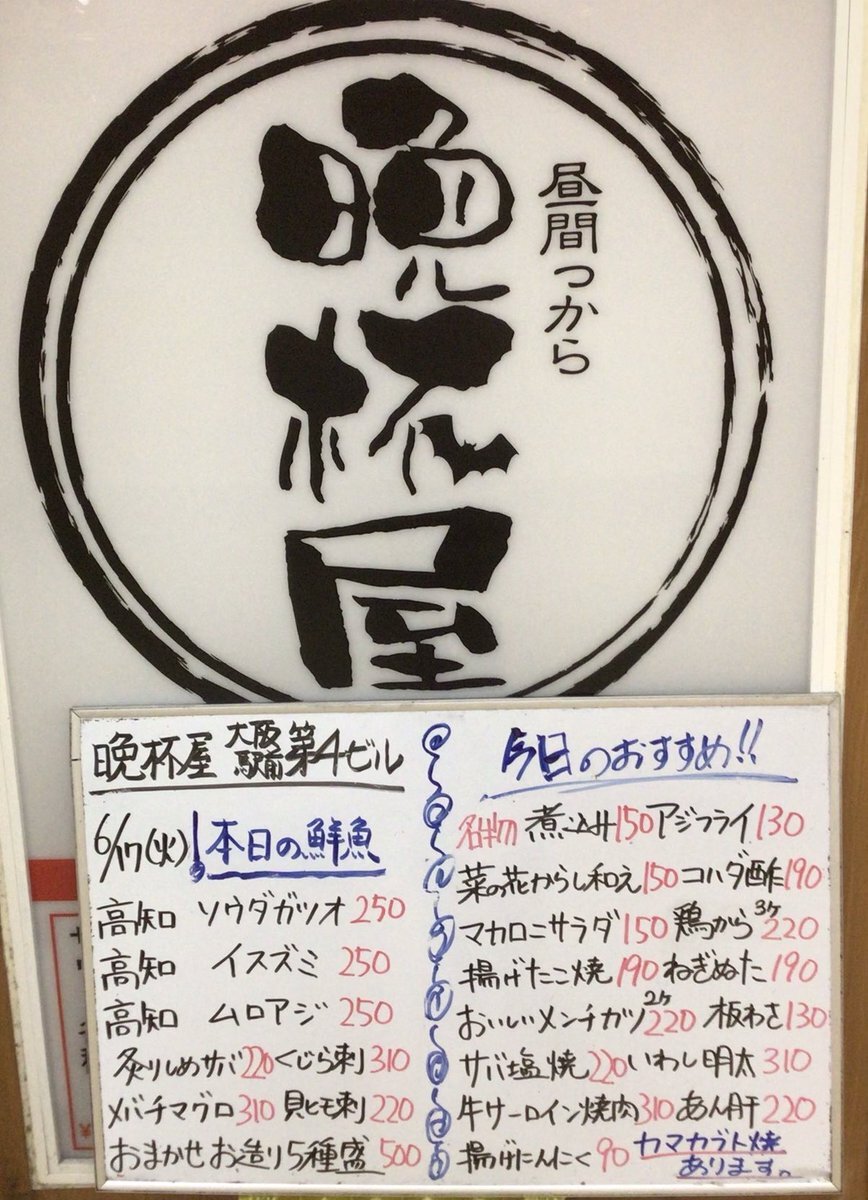 昼間っから
晩杯屋
晩杯屋 大阪駅前第4ビル
6/17(火) 本日の鮮魚
高知 ソウダガツオ 250
高知 イスズミ 250
高知 ムロアジ 250
炙りしめサバ 220 くじら刺 310
メバチマグロ 310 貝ヒモ刺 220
おまかせお造り5種盛 500
今日のおすすめ!!
名物 煮込み 150 アジフライ 130
菜の花からし和え 150 コハダ酢 190
マカロニサラダ 150 鶏から 3ケ 220
揚げたこ焼 190 ねぎぬた 190
おいしいメンチカツ 2ケ 220 板わさ 130
サバ塩焼 220 いわし明太 310
牛サーロイン焼肉 310 あん肝 220
揚げにんにく 90 カマカブト焼
あります。